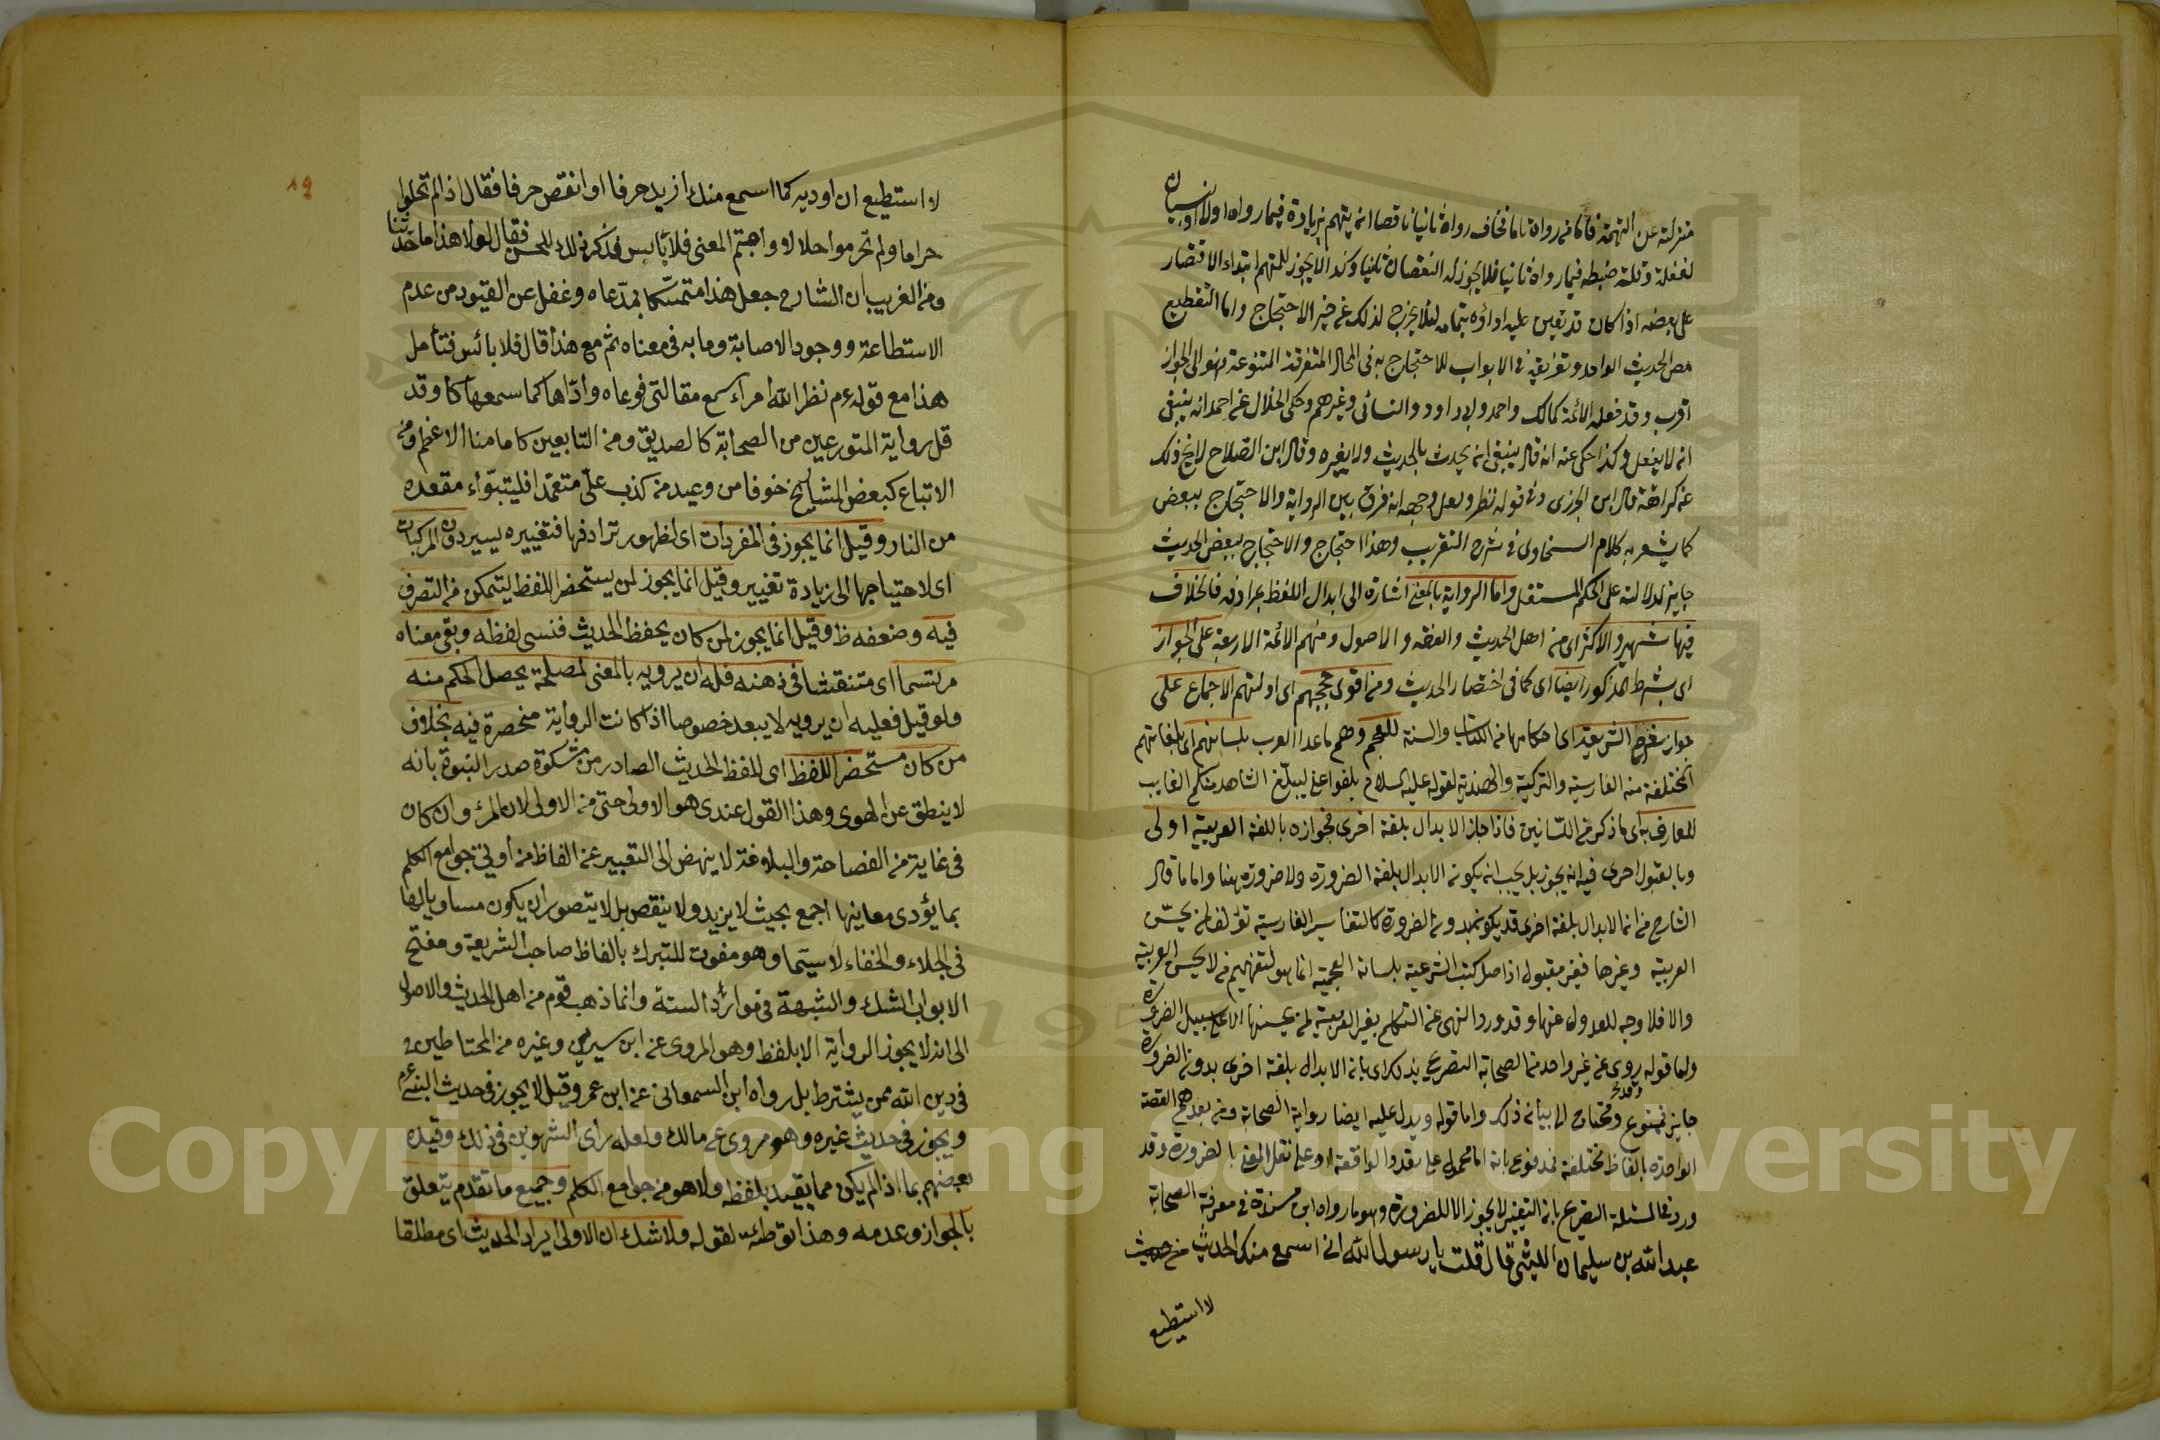 منزلته عن التهمة فاما من رواه تاما فخاف ان رواه ثانيا ناقصا ان يتهم بزيادة فيما رواه اولا او نسيان
لغفلة وقلة ضبطه فيما رواه ثانيا فلا يجوز له النقصان ثانيا وكذا لا يجوز للمتهم ابتداء الاقتصار
على بعضه اذا كان قد تعين عليه اداؤه بتمامه لئلا يخرج لذلك عن حيز الاحتجاج واما التقطيع
من الحديث الواحد وتفريقه في الابواب للاحتجاج به في المحال المتفرقة المتنوعة فهو الى الجواز
اقرب وقد فعله الائمة كمالك واحمد وابو داود والنسائى وغيرهم وحكى الخلال عن احمد انه ينبغى
انه لا يفعل وكذا حكى عنه انه قال ينبغى ان يحدث بالحديث ولا يغيره وقال ابن الصلاح لا يخ ذلك
عن كراهة قال ابن الجزرى وفى قوله نظر ولعل وجهه انه فرق بين الرواية والاحتجاج ببعض
كما يشعر به كلام السخاوى فى شرح التقريب وهذا احتجاج والاحتجاج ببعض الحديث
جايز لدلالته على الحكم المستقل واما الرواية بالمعنى اشارة الى ابدال اللفظ بمرادفه فالخلاف
فيها شهير والاكثر اى من اهل الحديث والفقه والاصول ومنهم الائمة الاربعة على الجواز
اى بشرط المذكور ايضا اى كما فى اختصار الحديث ومن اقوى حججهم اى ادلتهم الاجماع على
جواز شرح الشريعة اى احكامها من الكتاب والسنة للعجم وهم ما عدا العرب بلسانهم اى بلغاتهم
المختلفة منه الفارسية والتركية والهندية لقوله عليه السلام بلغوا عنى ليبلغ الشاهد منكم الغايب
للعارف به اى بما ذكر من اللسانين فاذا جاز الابدال بلغة اخرى فجوازه باللغة العربية اولى
وبالقبول احرى فيه انه يجوز بل يجب ان يكون الابدال بلغة الضرورة ولا ضرورة هنا واما ما قال
الشارح من ان الابدال بلغة اخرى قد يكون بدون الضرورة كالتفاسير الفارسية تؤلف لمن يحسن
العربية وغيرها فغير مقبول اذ اصل كتب الشرعية بلسان العجمية انما هو لتفهيم من لا يحسن العربية
والا فلا وجه للعدول عنها وقد ورد النهى عن التكلم بغير العربية لمن يحسنها الا على سبيل الضرورة
واما قوله روى عن غير واحد من الصحابة التصريح بذلك اى بان الابدال بلغة اخرى بدون الضرورة
جايز فممنوع ومحتاج الى بيان ذلك واما قوله ويدل عليه ايضا رواية الصحابة ومن بعدهم القصة
الواحدة بالفاظ مختلفة فمدفوع بانه اما محمول على تعدد الواقعة او على نقل المعنى بالضرورة وقد
ورد فى المسئلة التصريح بان التغيير لا يجوز الا للضرورة وهو ما رواه ابن مندة فى معرفة الصحابة
عبد الله بن سليمان الليثى قال قلت يا رسول الله انى اسمع منك الحديث من حديث
لا استطيع
١٩
لا استطيع ان اوديه كما اسمع منك ازيد حرفا او انقص حرفا فقال اذا لم تحلوا
حراما ولم تحرموا حلالا واصبتم المعنى فلا بأس فذكر ذلك للحسن فقال لولا هذا ما حدثنا
ومن الغريب ان الشارح جعل هذا متمسكا بمدعاه وغفل عن القيود من عدم
الاستطاعة ووجود الاصابة وما به فى معناه ثم مع هذا قال فلا بائس فتأمل
هذا مع قوله ءم نظر الله امراء سمع مقالتى فوعاه وادّاها كما سمعها كا وقد
قل رواية المتورعين من الصحابة كالصديق ومن التابعين كامامنا الاعظم ومن
الاتباع كبعض المشايخ خوفا من وعيد من كذب علىّ متعمدا فليتبوّء مقعده
من النار وقيل انما يجوز فى المفردات اى لظهور ترادفها فتغييره يسير دون المركبات
اى لاحتياجها الى زيادة تغيير وقيل انما يجوز لمن يستحضر اللفظ ليتمكن من التصرف
فيه وضعفه ظ وقيل انما يجوز لمن كان يحفظ الحديث فنسى لفظه وبقى معناه
مرتسما اى متنقشا فى ذهنه فله ان يرويه بالمعنى لمصلحة يحصل الحكم منه
ولو قيل فعليه ان يرويه لا يبعد خصوصا اذا كانت الرواية منحصرة فيه بخلاف
من كان مستحضرا للفظ اى للفظ الحديث الصادر من مشكوة صدر النبوة بانه
لا ينطق عن الهوى وهذا القول عندى هو الاولى حتى من الاولى لان المرء وان كان
فى غاية من الفصاحة والبلاغة لا ينهض الى التعبير عن الفاظ من أوتى جوامع الكلم
بما يؤدى معانيها اجمع بحيث لا يزيد ولا ينقص بل لا يتصور ان يكون مساويا لها
فى الجلاء والخفاء لا سيّما وهو مفوت للتبرك بالفاظ صاحب الشريعة ومفتح
الابواب الشك والشبهة فى موارد الستة وانما ذهب قوم من اهل الحديث والاصول
الى انه لا يجوز الرواية الا بلفظ وهو المروى عن ابن سيرين وغيره من المحتاطين
فى دين الله ممن يشترط بل رواه ابن السمعانى عن ابن عمر وقيل لا يجوز فى حديث النبى ءم
ويجوز فى حديث غيره وهو مروى عن مالك ولعله راى التهوين فى ذلك وقيده
بعضهم بما اذا لم يكن مما يقيد بلفظه ولا هو من جوامع الكلم وجميع ما تقدم يتعلق
بالجواز وعدمه وهذا توطئة لقوله ولا شك ان الاولى ايراد الحديث اى مطلقا
Copyright © King Saud University